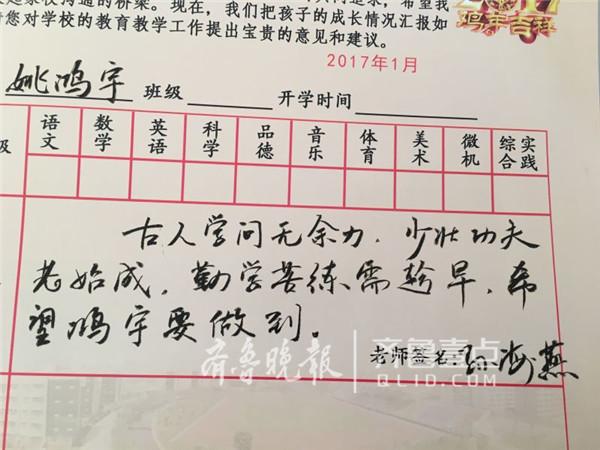 长起家校沟通的桥梁。现在，我们把孩子的成长情况汇报如
请您对学校的教育教学工作提出宝贵的意见和建议。
2017
鸡年吉祥
2017年1月
姚鸿宇 班级 开学时间
级 语文 数学 英语 科学 品德 音乐 体育 美术 微机 综合实践
古人学问无余力，少壮功夫
老始成，勤学苦练需趁早，希
望鸿宇要做到。
老师签名: 孙海燕
齐鲁晚报 齐鲁壹点
QLID.COM